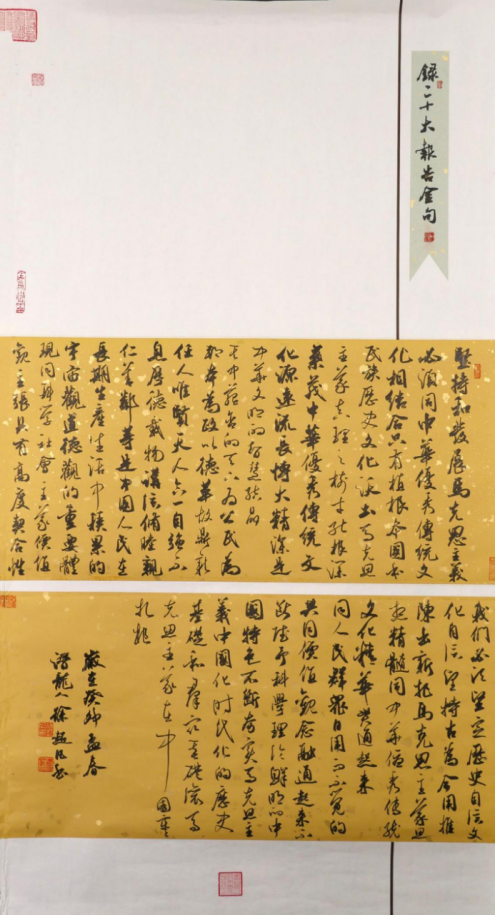 錄二十大報告金句
堅持和發展馬克思主義
必須同中華優秀傳統文
化相結合只有植根本國本
民族歷史文化沃土馬克思
主義真理之樹才能根深
葉茂中華優秀傳統文
化源遠流長博大精深是
中華文明的智慧結晶
其中蘊含的天下為公民為
邦本為政以德革故鼎新
任人唯賢天人合一自強不
息厚德載物講信修睦親
仁善鄰等是中國人民在
長期生產生活中積累的
宇宙觀道德觀的重要體
現同科學社會主義價值
觀主張具有高度契合性
我們必須堅定歷史自信文
化自信堅持古為今用推
陳出新把馬克思主義思
想精髓同中華優秀傳統
文化精華貫通起來
同人民群眾日用而不覺的
共同價值觀念融通起來不
斷賦予科學理論鮮明的中
國特色不斷夯實馬克思主
義中國化時代化的歷史
基礎和群眾基礎讓馬
克思主義在中國牢
扎根
歲在癸卯孟春
潛龍人徐